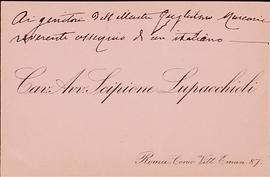 Ai genitori dell'illustre Guglielmo Marconi
reverente ossequio di un italiano
Cav. Avv. Scipione Lupacchioli
Roma - Corso Vitt. Eman. 87.